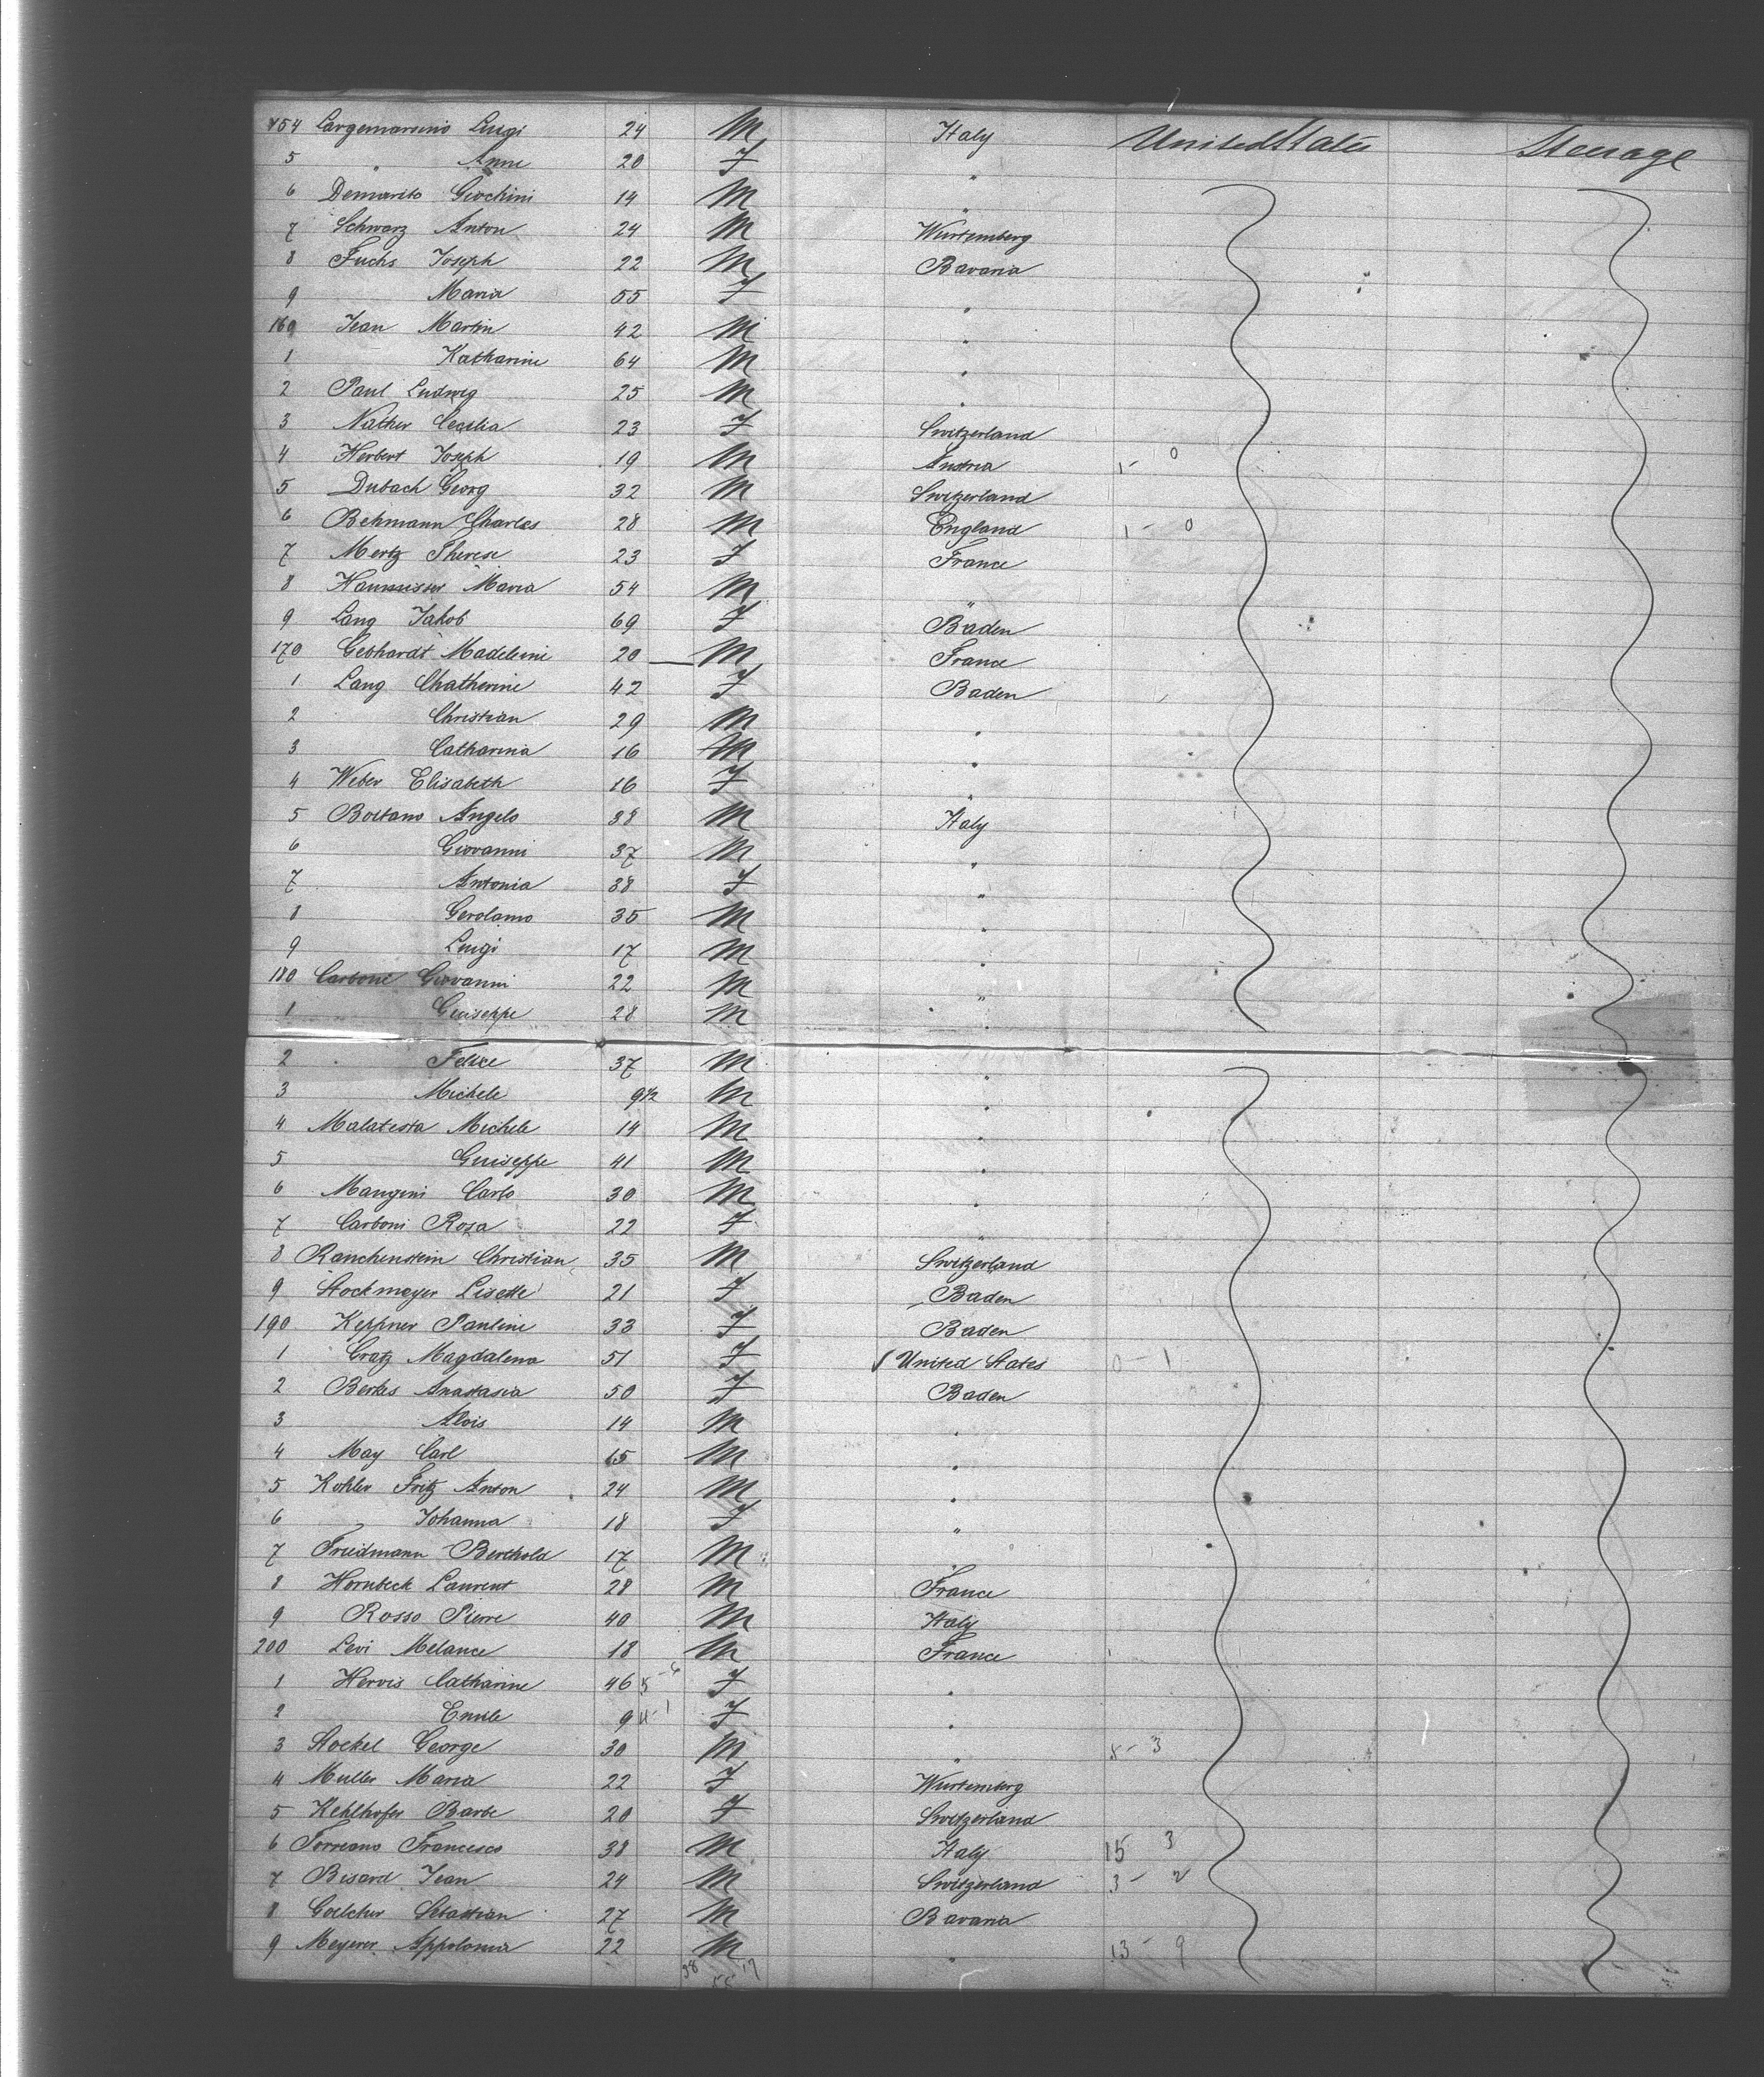 154 Largomarsino Luigi 24 M Italy United States Steerage
5 " Anne 20 F "
6 Demarsto Giochini 14 M "
7 Schwarz Anton 24 M Wurtemberg
8 Fuchs Joseph 22 M Bavaria
9 Maria 55 F "
160 Jean Martin 42 M "
1 Katharine 64 M "
2 Paul Ludwig 25 M "
3 Nather Cecilia 23 F Switzerland
4 Herbert Joseph 19 M Austria 1 - 0
5 Dubach Georg 32 M Switzerland
6 Behmann Charles 28 M England 1 - 0
7 Mertz Therese 23 F France
8 Maria 54 M "
9 Lang Jakob 69 F Baden
170 Gebhardt Madeleine 20 M France
1 Lang Chatherine 42 F Baden
2 Christian 29 M "
3 Catharina 16 M "
4 Weber Elisabeth 16 F "
5 Boitano Angelo 38 M Italy
6 Giovanni 37 M "
7 Antonia 38 F "
8 Gerolamo 35 M "
9 Luigi 17 M "
180 Carboni Giovanni 22 M "
1 Guiseppe 28 M "
2 Felice 37 M "
3 Michele 9 1/2 M "
4 Malatesta Michele 14 M "
5 Guiseppe 41 M "
6 Mangini Carlo 30 M "
7 Carboni Rosa 22 F "
8 Ranchenstein Christian 35 M Switzerland
9 Stockmeyer Lisette 21 F Baden
190 Keppner Pauline 33 F Baden
1 Gratz Magdalena 51 F United States 0 - 1
2 Berkes Anastasia 50 F Baden
3 Alois 14 M "
4 May Carl 65 M "
5 Kohler Fritz Anton 24 M "
6 Johanna 18 F "
7 Friedmann Berthold 17 M "
8 Hornbeck Laurent 28 M France
9 Rosso Pierre 40 M Italy
200 Levi Melance 18 M France
1 Hervis Catharine 46 F "
2 Emile 9 F "
3 Stockel George 30 M " 8 - 3
4 Muller Maria 22 F Wurtemberg
5 Kehlhofer Barbe 20 F Switzerland
6 Torreano Francesco 38 M Italy 15 3
7 Bisard Jean 24 M Switzerland 3 - 2
8 Goelcher Sebastian 27 M Bavaria
9 Meyerer Appolonia 22 M " 13 - 9
38 55 17